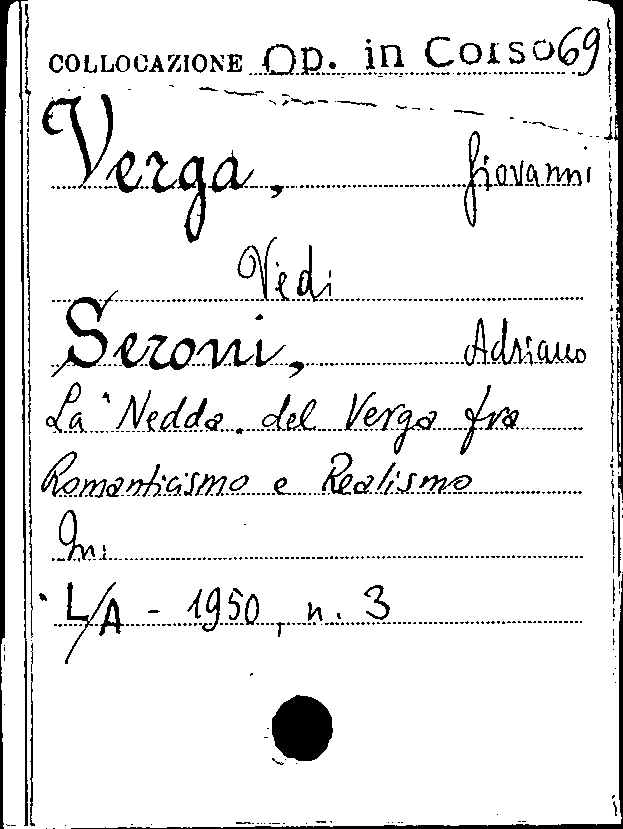 COLLOCAZIONE Op. in Corso 69
Verga, Giovanni
Vedi
Seroni, Adriano
La "Nedda" del Verga fra
Romanticismo e Realismo
In:
L/A - 1950, n. 3